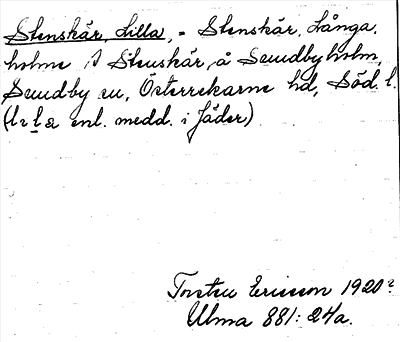 Stenskär, Lilla, = Stenskär, Långa,
holme i Stenskär, å Sundbyholm,
Sundby sn, Österrekarne hd, Söd. l.
(l enl. medd. i Jäder)
Torsten Ericsson 1920?
Ulma 881: 24a.